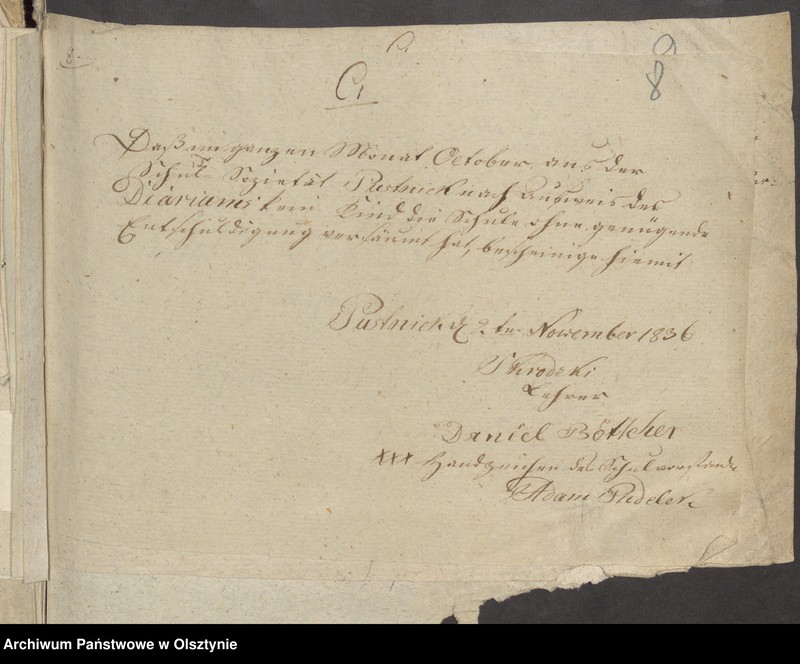 8
C,
8
Daß im ganzen Monat October aus der
Schul Sozietät Pustnick nach Ausweis des
Diariums kein Kind die Schule ohne genügende
Entschuldigung versäumt hat, bescheinige hiemit
Pustnick d 2ten November 1836
Skrodzki
Lehrer
Daniel Böttcher
xxx Handzeichen des Schulvorstands
Adam
Archiwum Państwowe w Olsztynie